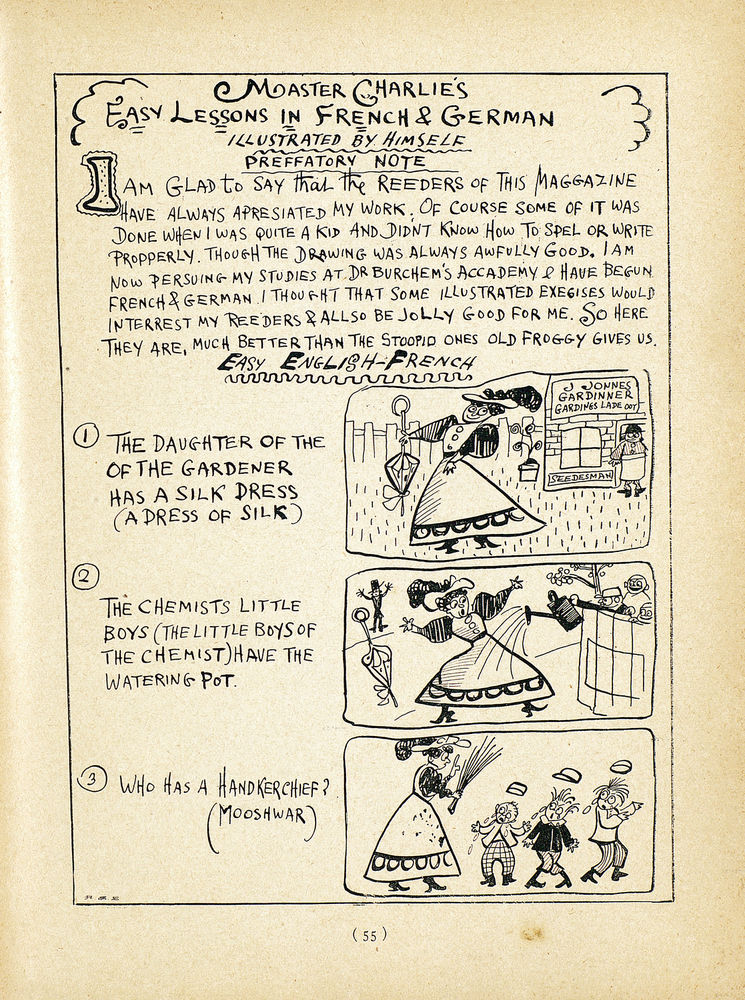 MASTER CHARLIE'S
EASY LESSONS IN FRENCH & GERMAN
ILLUSTRATED BY HIMSELF
PREFFATORY NOTE
I AM GLAD to SAY that the REEDERS OF THIS MAGGAZINE
HAVE ALWAYS APRESIATED MY WORK. OF COURSE SOME OF IT WAS
DONE WHEN I WAS QUITE A KID AND DIDNT KNOW HOW TO SPEL OR WRITE
PROPPERLY. THOUGH THE DRAWING WAS ALWAYS AWFULLY GOOD. I AM
NOW PERSUING MY STUDIES AT DR BURCHEM'S ACCADEMY & HAVE BEGUN
FRENCH & GERMAN. I THOUGHT THAT SOME ILLUSTRATED EXEGISES WOULD
INTERREST MY REEDERS & ALLSO BE JOLLY GOOD FOR ME. SO HERE
THEY ARE, MUCH BETTER THAN THE STOOPID ONES OLD FROGGY GIVES US.
EASY ENGLISH-FRENCH
1 THE DAUGHTER OF THE
OF THE GARDENER
HAS A SILK DRESS
(A DRESS OF SILK)
J JONNES
GARDINNER
GARDINGS LADE OOT
SEEDESMAN
2
THE CHEMISTS LITTLE
BOYS (THE LITTLE BOYS OF
THE CHEMIST) HAVE THE
WATERING POT.
3 WHO HAS A HANDKERCHIEF?
(MOOSHWAR)
(55)